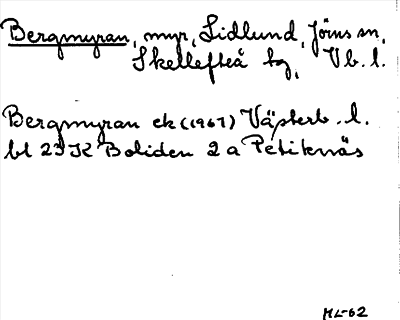 Bergmyran, myr, Lidlund, Jörns sn,
Skellefteå kg, Vb. l.
Bergmyran ek (1967) Västerb. l.
bl 23 K Boliden 2 a Petiknäs
ML-62